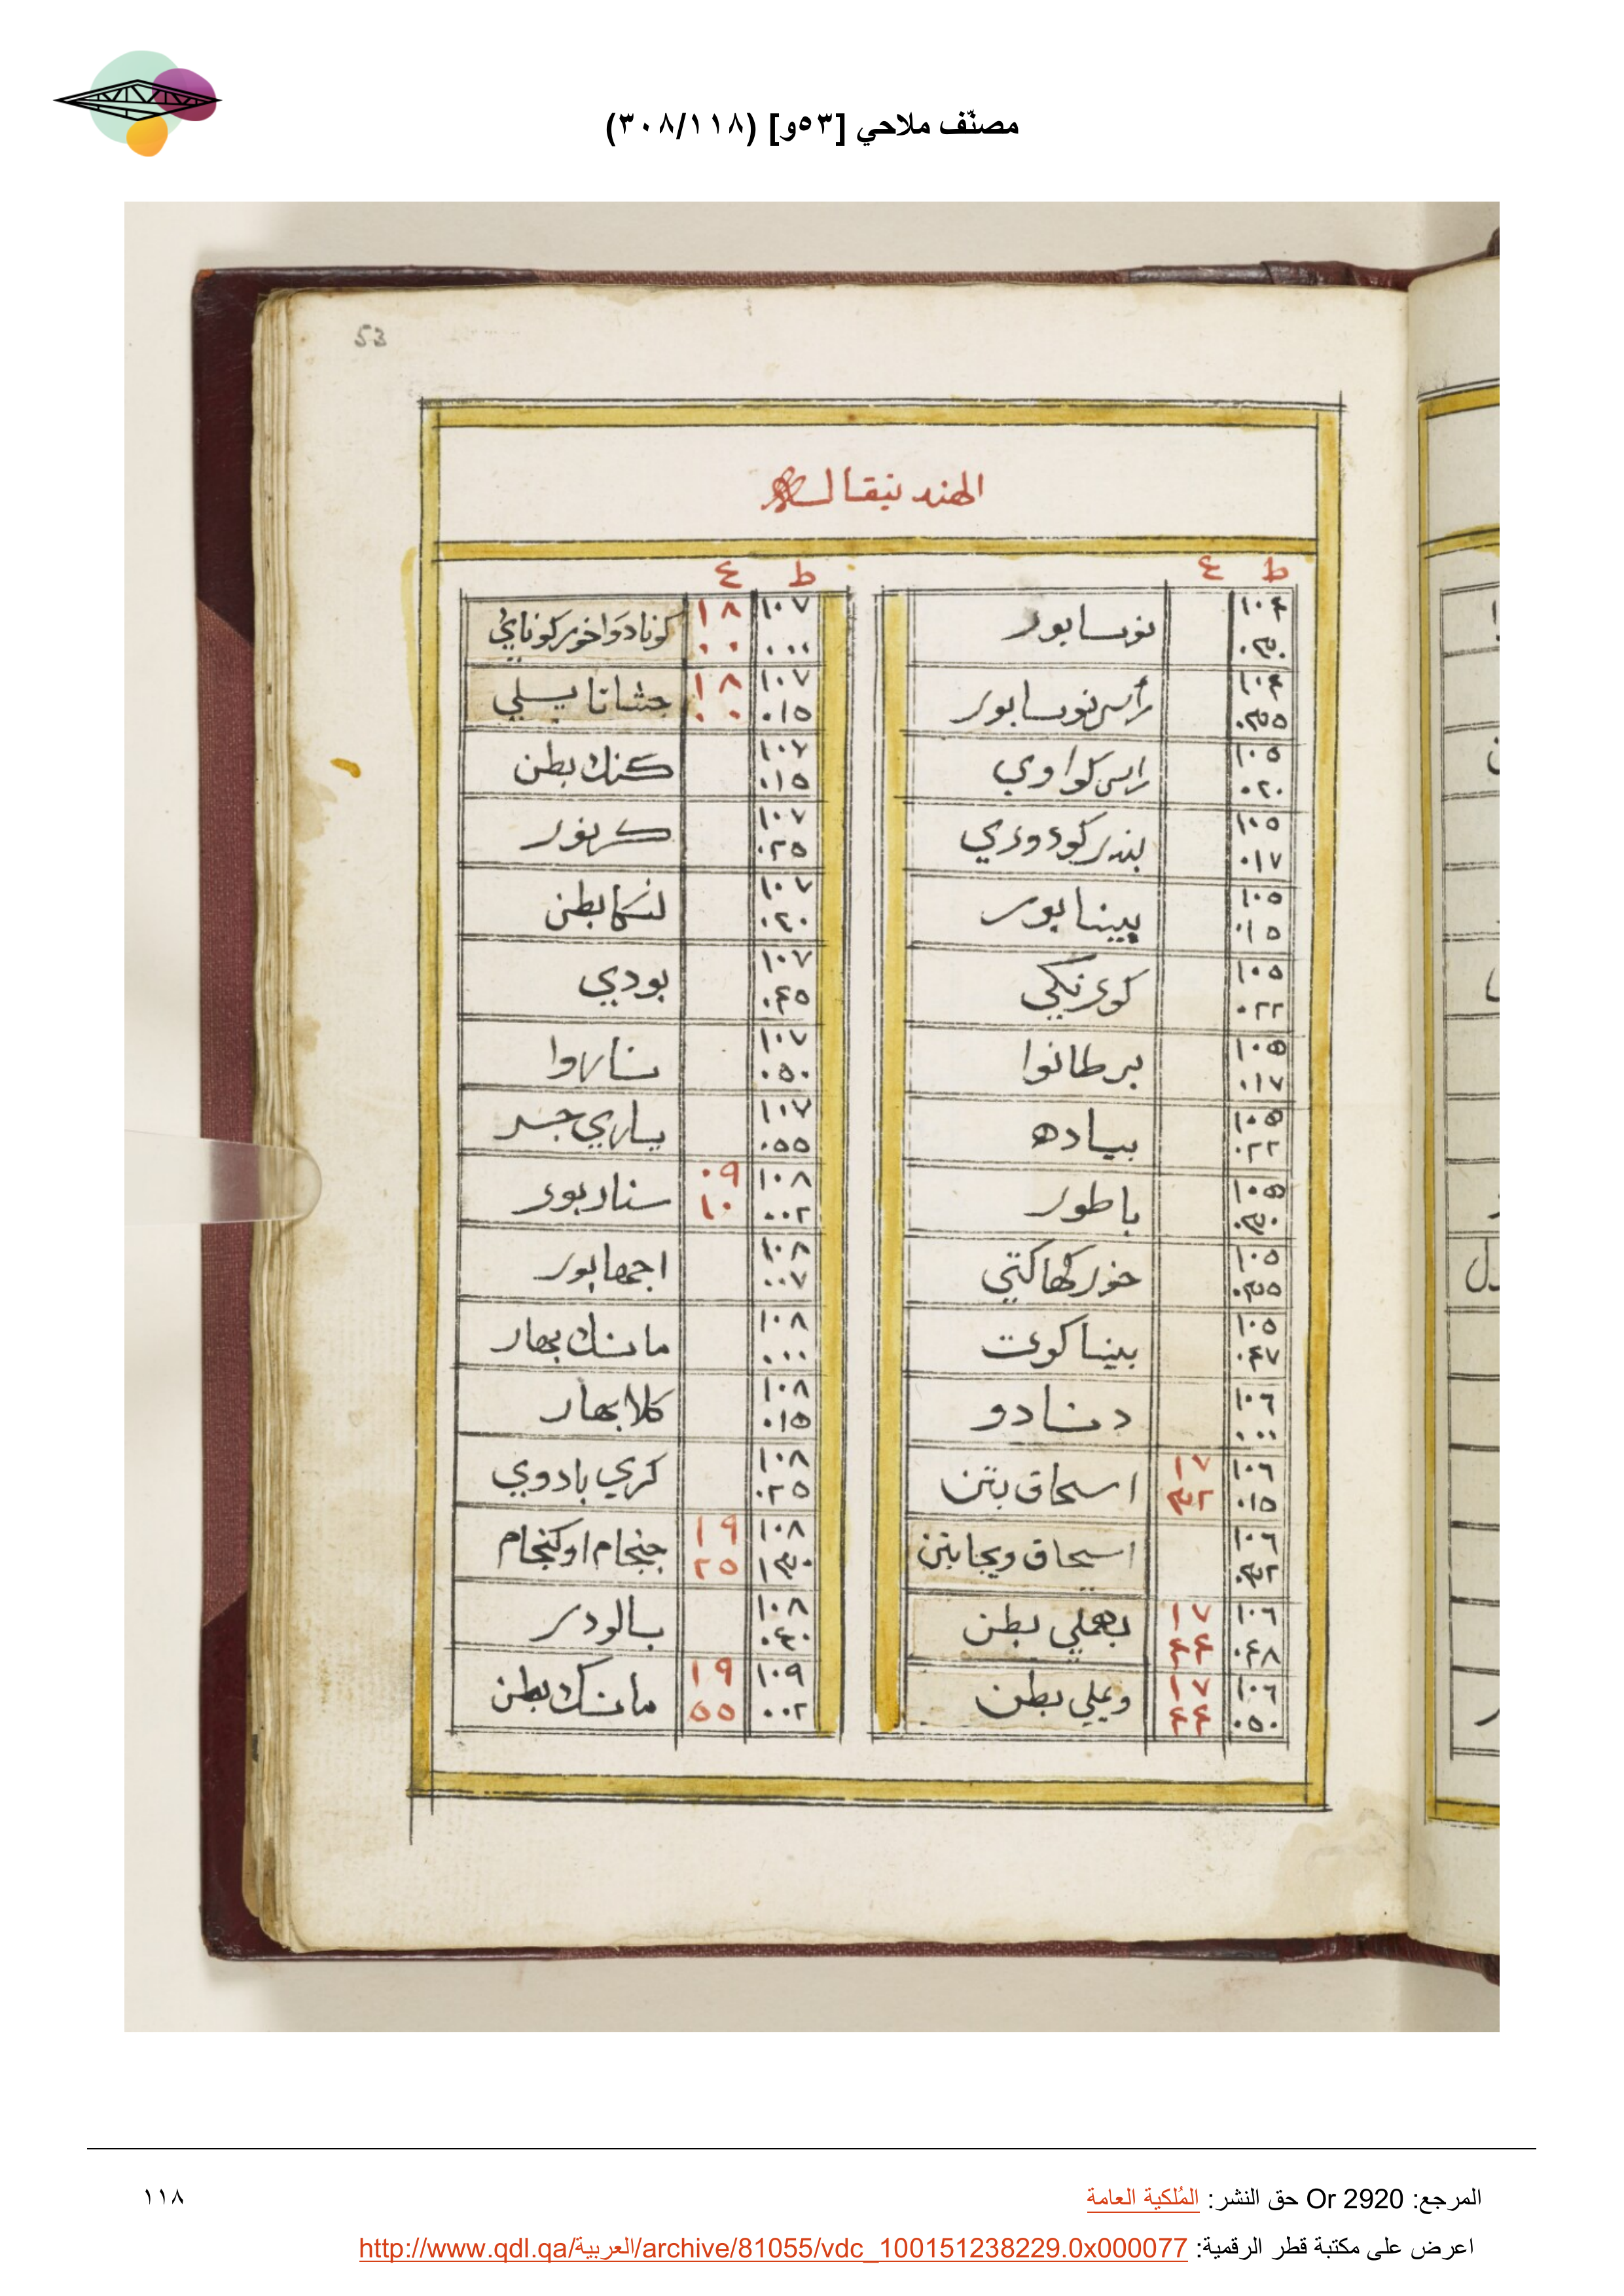 مصنّف ملاحي [٥٣و] (٣٠٨/١١٨)
53
الهند بنقالـ
ط ع
١٠٤ ٠٣٠ نوسابور
١٠٤ ٠٣٥٥ رأس نوسابور
١٠٥ ٠٢٠ راس كواوي
١٠٥ ٠١٧ بندر كوء وءري
١٠٥ ٠١٥ بيينابور
١٠٥ ٠٢٢ كوء نكي
١٠٥ ٠١٧ برطانوا
١٠٥ ٠٢٢ بياده
١٠٥ ٠٣٠ باطور
١٠٥ ٠٣٥٥ خور كهاكتي
١٠٥ ٠٤٧ بيناكوت
١٠٦ ٠٠٠ دنادو
١٠٦ ٠١٥ ١٧ ٣٢ اسحاق بتن
١٠٦ ٠٣٢ اسحاق ويجابتن
١٠٦ ٠٤٨ ١٧ ٤٤ بهملي بطن
١٠٦ ٠٥٠ ١٧ ٤٤ ويملي بطن
ط ع
١٠٧ ٠٠٠ ١٨ ٠٠ كونادوا خور كوناي
١٠٧ ٠١٥ ١٨ ٠٠ جشانا يسلي
١٠٧ ٠١٥ كنك بطن
١٠٧ ٠٢٥ كرنور
١٠٧ ٠٤٠ لنكا بطن
١٠٧ ٠٤٥ بودي
١٠٧ ٠٥٠ ناروا
١٠٧ ٠٥٥ ياري جسر
١٠٨ ٠٠٢ ٠٩ ١٠ سناربور
١٠٨ ٠٠٧ اجمهابور
١٠٨ ٠٠٠ مانك بهار
١٠٨ ٠١٥ كلابهار
١٠٨ ٠٢٥ كري بادوي
١٠٨ ١٣٠ ١٩ ٢٥ جنجام او كنجام
١٠٨ ٠٤٠ بالودر
١٠٩ ٠٠٢ ١٩ ٥٥ مانك بطن
المرجع: Or 2920 حق النشر: المُلكية العامة
١١٨
اعرض على مكتبة قطر الرقمية: http://www.qdl.qa/العربية/archive/81055/vdc_100151238229.0x000077